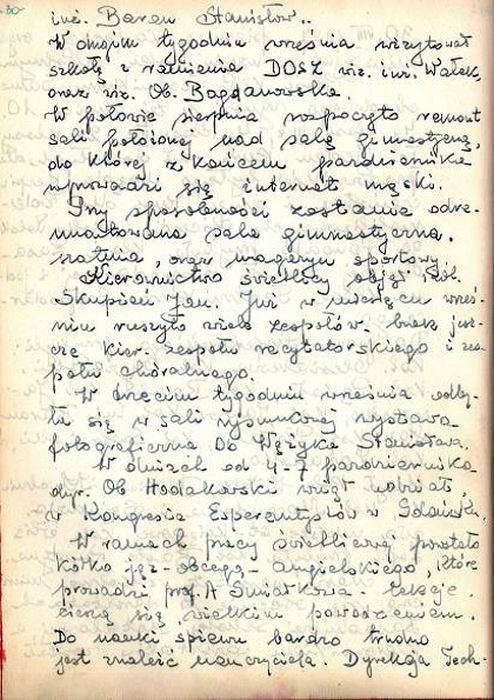 -30-
inż. Baran Stanisław..
W drugim tygodniu września wizytował
szkołę z ramienia DOSZ wiz. inż. Wałek,
oraz wiz. Ob. Bogdanowska.
W połowie sierpnia rozpoczęto remont
sali położonej nad salą gimnastyczną,
do której z końcem października
wprowadzi się internat męski.
Przy sposobności zostanie odre-
montowana sala gimnastyczna,
szatnia, oraz magazyn sportowy.
Kierownictwo świetlicy objął kol.
Skupień Jan. Już w miesiącu wrześ-
niu ruszyło wiele zespołów. brak jesz-
cze kier. zespołu recytatorskiego i ze-
połu chóralnego.
W trzecim tygodniu września odby-
ła się w sali rysunkowej wystawa
fotograficzna Ob Wężyka Stanisława.
W dniach od 4-7 października
dyr. Ob Hodakowski wziął udział,
w Kongresie Esperantystów w Gdańsku.
W ramach pracy świetlicowej powstało
kółko jęz-obcego-angielskiego, które
prowadzi prof. A Smiałkowa - lekcje
cieszą się wielkim powodzeniem.
Do nauki śpiewu bardzo trudno
jest znaleść nauczyciela. Dyrekcja Tech-